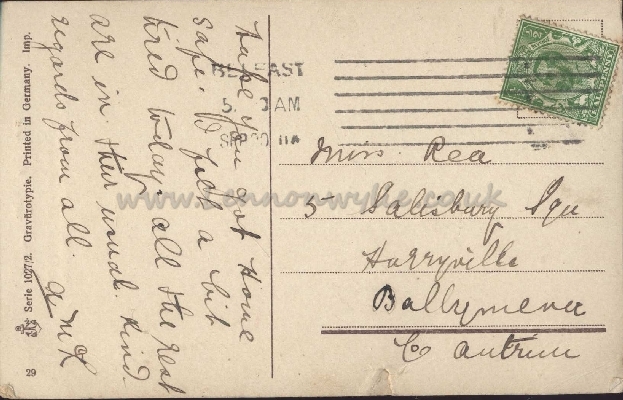 hope you got home
safe. I felt a bit
tired today. all the rest
are in their usual. Kind
regards from all.
A McK
BELFAST
5. 30AM
SP 30 11A
Miss. Rea
5 Salisbury Squ
Harryville
Ballymena
Co Antrim
www.lennonwylie.co.uk
Serie 1027/2. Gravürotypie. Printed in Germany. Imp.
29